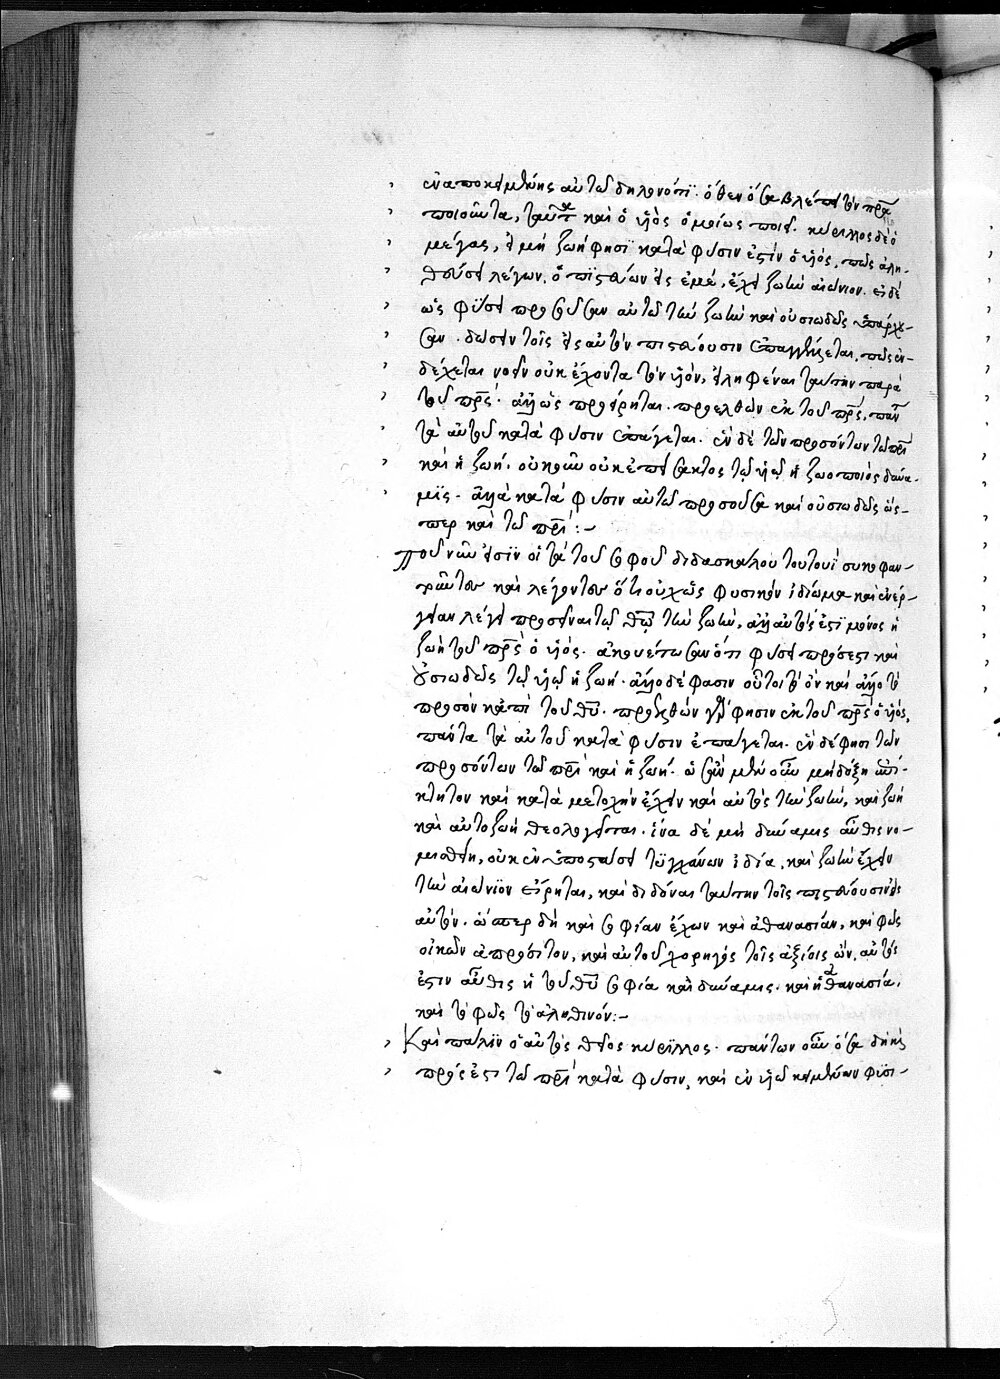 ἐναποκειμένης αὐτῶ δηλονότι. ὅθεν ὅσα βλέπει τὸν πρα
ποιοῦντα, ταῦτα καὶ ὁ υἱὸς ὁμοίως ποιεῖ. κύριλλος δὲ ὁ
μέγας, εἰ μὴ ζωή φησι κατὰ φύσιν ἐστὶν ὁ υἱός, πῶς ἀλη-
θεύσει λέγων, ὁ πιστεύων εἰς ἐμέ, ἔχει ζωὴν αἰώνιον. εἰ δὲ
ὡς φύσει προσοῦσαν αὐτῶ τὴν ζωὴν καὶ οὐσιωδῶς ὑπάρχου-
σαν. δώσειν τοῖς εἰς αὐτὸν πιστεύουσιν ἐπαγγέλλεται, πῶς ἐν-
δέχεται νοεῖν οὐκ ἔχοντα τὸν υἱόν, εἰληφέναι ταύτην παρὰ
τοῦ πρς. ἀλλ' ὡς προείρηται. προελθὼν ἐκ τοῦ πρς, πάντα
τὰ αὐτοῦ κατὰ φύσιν ἐπάγεται. ἓν δὲ τῶν προσόντων τῶ πρι
καὶ ἡ ζωή. οὐκοῦν οὐκ ἐπείσακτος τῷ υἱῷ ἡ ζωοποιὸς δύνα-
μις. ἀλλὰ κατὰ φύσιν αὐτῶ προσοῦσα καὶ οὐσιωδῶς ὥς-
περ καὶ τῶ πρι :-
Ποῦ νῦν εἰσὶν οἱ τὰ τοῦ σοφοῦ διδασκάλου τουτουῒ συκοφαν-
τοῦντες καὶ λέγοντες ὅτι οὐχ ὡς φυσικὸν ἰδίωμα καὶ ἐνέρ-
γειαν λέγει προσεῖναι τῷ θῶ τὴν ζωήν, ἀλλ' αὐτός ἐστι μόνος ἡ
ζωὴ τοῦ πρς ὁ υἱός. ἀκουέτωσαν ὅτι φύσει πρόσεστι καὶ
οὐσιωδῶς τῷ υἱῷ ἡ ζωή. ἄλλο δέ φασιν οὗτοι τὸ ὂν καὶ ἄλλο τὸ
προσὸν κἀπὶ τοῦ θυ. προελθὼν γάρ φησιν ἐκ τοῦ πρς ὁ υἱός,
πάντα τὰ αὐτοῦ κατὰ φύσιν ἐπάγεται. ἓν δέ φησι τῶν
προσόντων τῶ πρι καὶ ἡ ζωή. ὡς ἂν μὲν οὖν μὴ δόξη ἐπί-
κτητον καὶ κατὰ μετοχὴν ἔχειν καὶ αὐτὸς τὴν ζωήν, καὶ ζωὴ
καὶ αὐτοζωὴ θεολογεῖται. ἵνα δὲ μὴ δύναμις αὖθις νο-
μισθείη, οὐκ ἐν ὑποστάσει τυγχάνων ἰδία, καὶ ζωὴν ἔχειν
τὴν αἰώνιον εἴρηται, καὶ διδόναι ταύτην τοῖς πιστεύουσιν εἰς
αὐτόν. ὥσπερ δὴ καὶ σοφίαν ἔχων καὶ ἀθανασίαν, καὶ φῶς
οἰκῶν ἀπρόσιτον, καὶ αὐτοῦ χορηγὸς τοῖς ἀξίοις ὤν, αὐτός
ἐστιν αὖθις ἡ τοῦ θυ σοφία καὶ δύναμις. καὶ ἡ ἀθανασία,
καὶ τὸ φῶς τὸ ἀληθινόν :-
Καὶ πάλιν ὁ αὐτὸς θεῖος κύριλλος. πάντων οὖν ὅσα διηνεκῶς
πρόσεστι τῶ πρι κατὰ φύσιν, καὶ ἐν υἱῶ κειμένων φυσι-